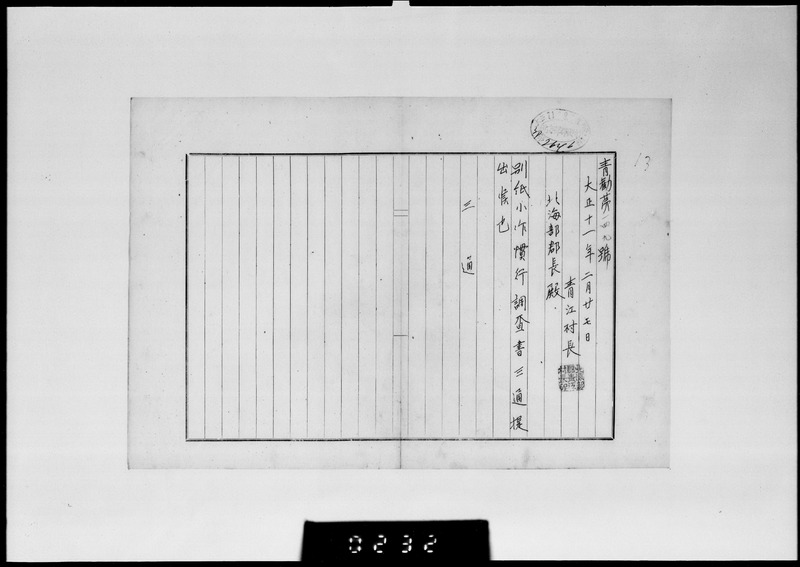 13
青勧第一四九號
大正十一年二月廿七日
青江村長
北海部郡長殿
別紙小作慣行調査書三通提
出候也
三通
0232